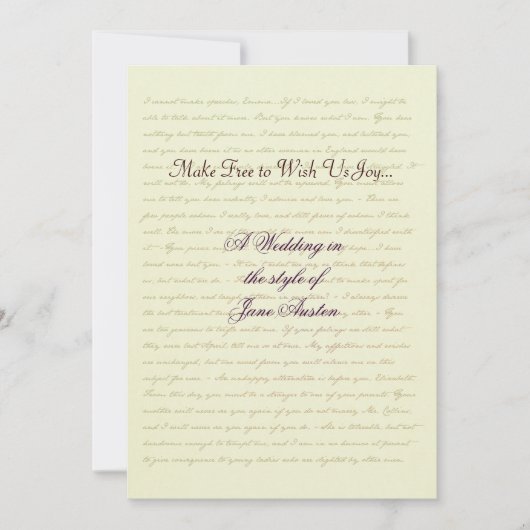 I cannot make speeches, Emma...If I loved you less, I might be
able to talk about it more. But you know what I am. You hear
nothing but truth from me. I have blamed you, and lectured you,
and you have borne it as no other woman in England would have
Make Free to Wish Us Joy...
will not do. My feelings will not be repressed. You must allow
me to tell you how ardently I admire and love you. - There are
few people whom I really love, and still fewer of whom I think
well. The more I see of the world, the more am I dissatisfied with
it - You pierce my hope...I have
A Wedding in
loved none but you. - It isn't what we say or think that defines
us, but what we do. - to make sport for
the style of
our neighbors, and laugh at them in our turn? - I always deserve
the best treatment other. - You are
Jane Austen
too generous to trifle with me. If your feelings are still what
they were last April, tell me so at once. My affections and wishes
are unchanged, but one word from you will silence me on this
subject for ever. - An unhappy alternative is before you, Elizabeth.
From this day you must be a stranger to one of your parents. Your
mother will never see you again if you do not marry Mr. Collins,
and I will never see you again if you do. - She is tolerable, but not
handsome enough to tempt me, and I am in no humor at present
to give consequence to young ladies who are slighted by other men.